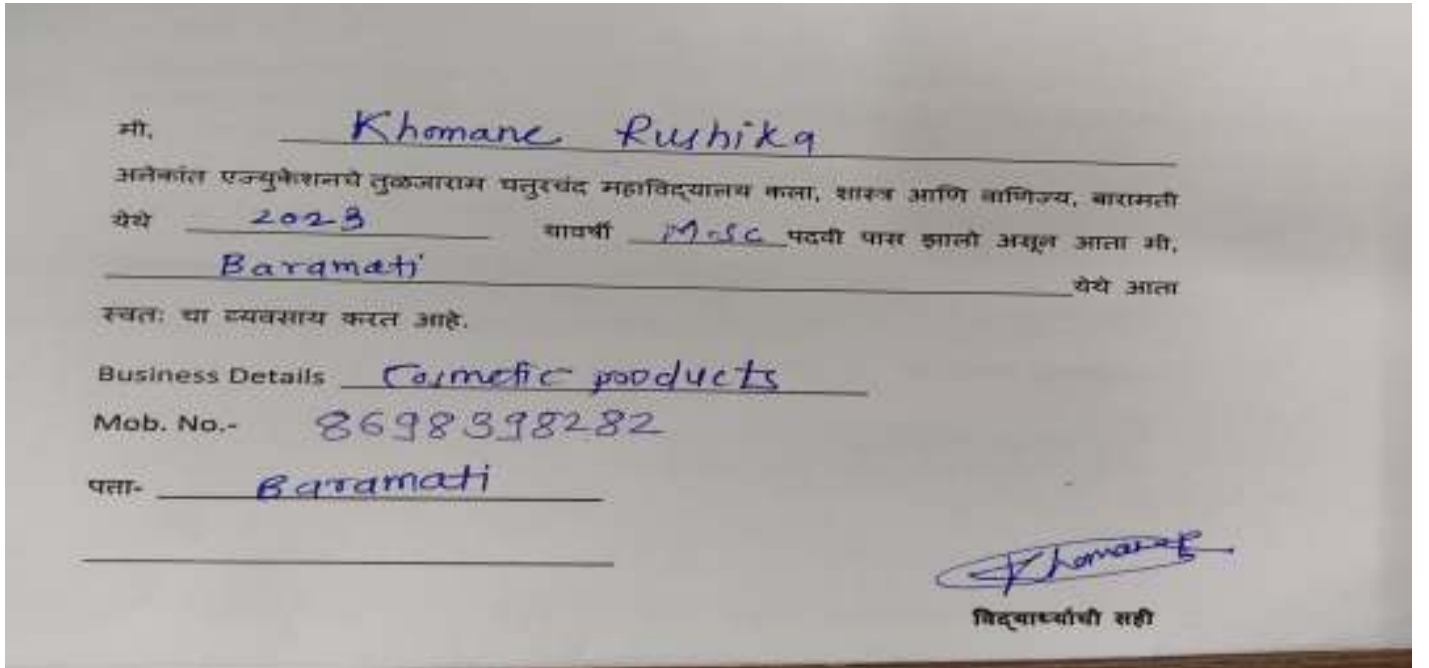 मी, Khomane Rushika
अनेकांत एज्युकेशनचे तुळजाराम चतुरचंद महाविद्यालय कला, शास्त्र आणि वाणिज्य, बारामती
येथे 2023 यावर्षी M.Sc पदवी पास झालो असून आता मी,
Baramati येथे आता
स्वतः चा व्यवसाय करत आहे.
Business Details Cosmetic products
Mob. No.- 8698398282
पत्ता- Baramati
Khomane
विद्यार्थ्याची सही